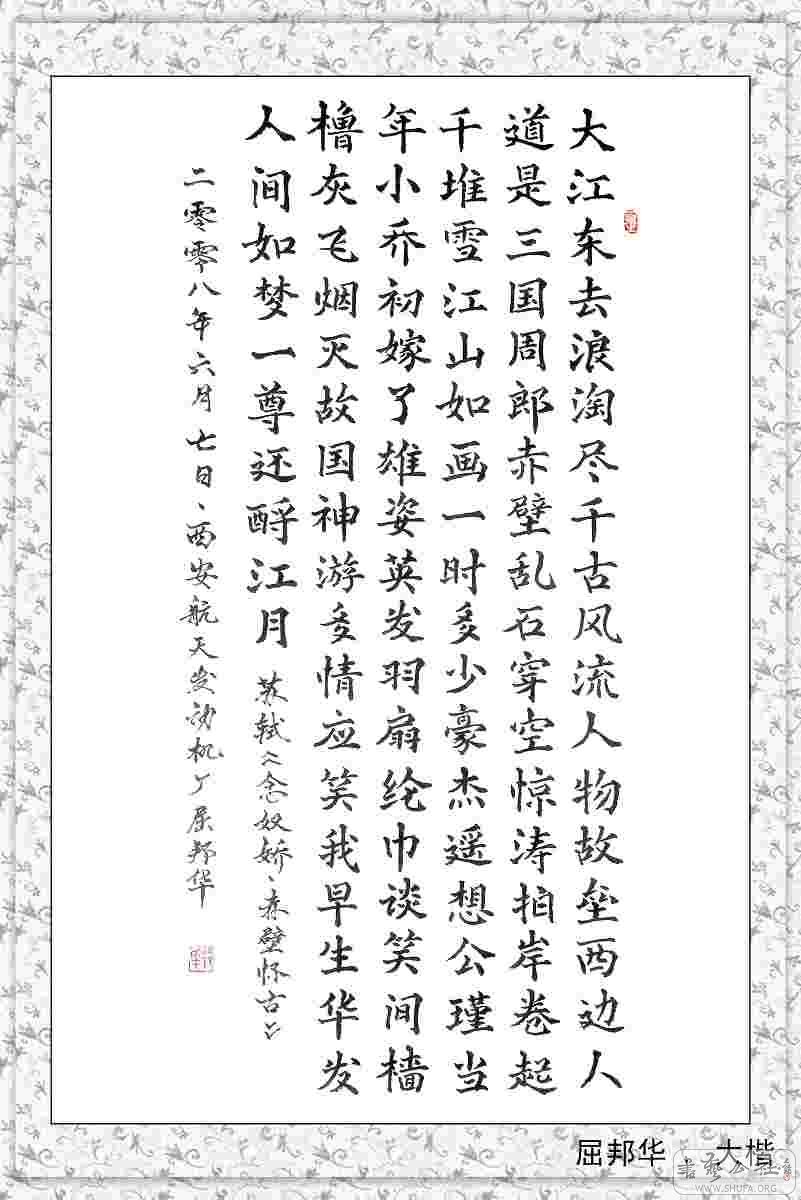 大江东去浪淘尽千古风流人物故垒西边人
道是三国周郎赤壁乱石穿空惊涛拍岸卷起
千堆雪江山如画一时多少豪杰遥想公瑾当
年小乔初嫁了雄姿英发羽扇纶巾谈笑间樯
橹灰飞烟灭故国神游多情应笑我早生华发
人间如梦一尊还酹江月 苏轼《念奴娇、赤壁怀古》
二零零八年六月七日、西安航天发动机厂屈邦华
屈邦华 大楷
書藝公社
WWW.SHUFA.ORG